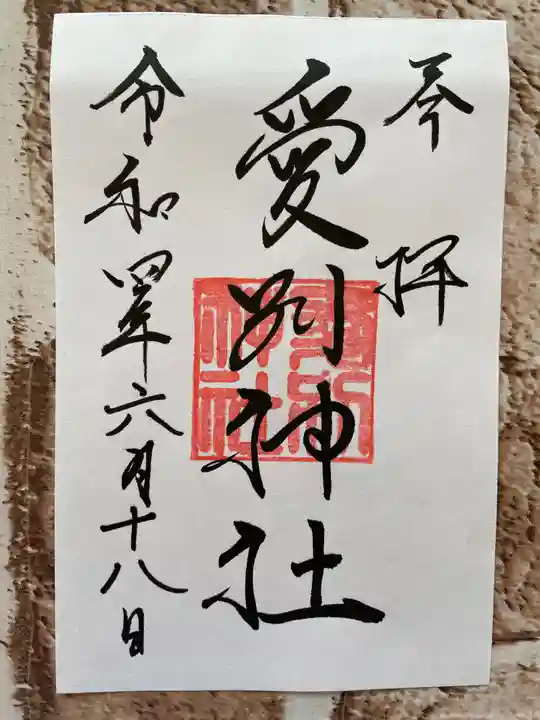 奉拝
愛別神社
令和四年六月十八日